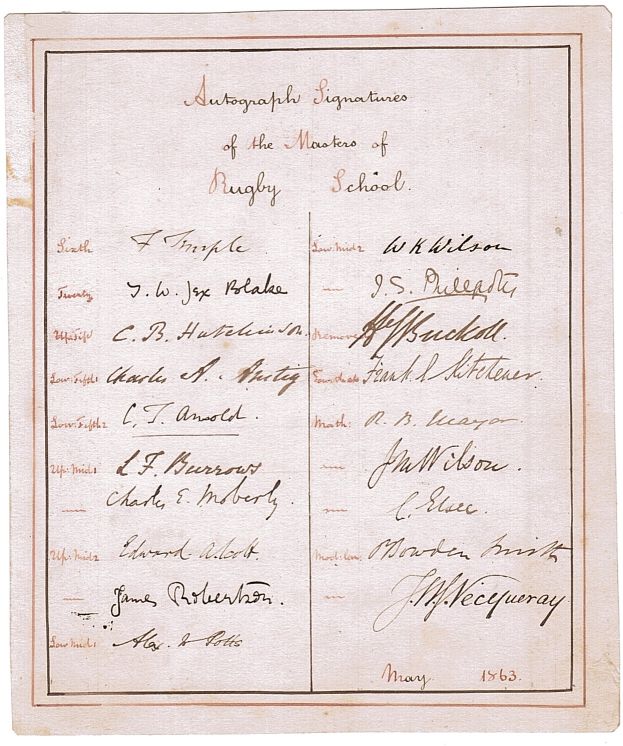 Autograph Signatures
of the Masters of
Rugby School.
Sixth F Temple
Twenty T. W. Jex Blake
C. B. Hutchinson.
Low: Fifth 1 Charles A.
Low: Fifth 2 C. T. Arnold.
Up: Mid 1 L F. Burrows
— Charles E. Moberly.
Up: Mid 2 Edward A.
— James Robertson.
Low Mid: 1 Alex. W Potts
Low Mid 2 W K Wilson
— J. S. Phillpotts
Remove Buckoll.
Frank Kitchener.
Math: R. B. Mayor
— J M Wilson.
— C. Elsee.
Mod: lan: Bowden Smith
— Vecqueray
May 1863.